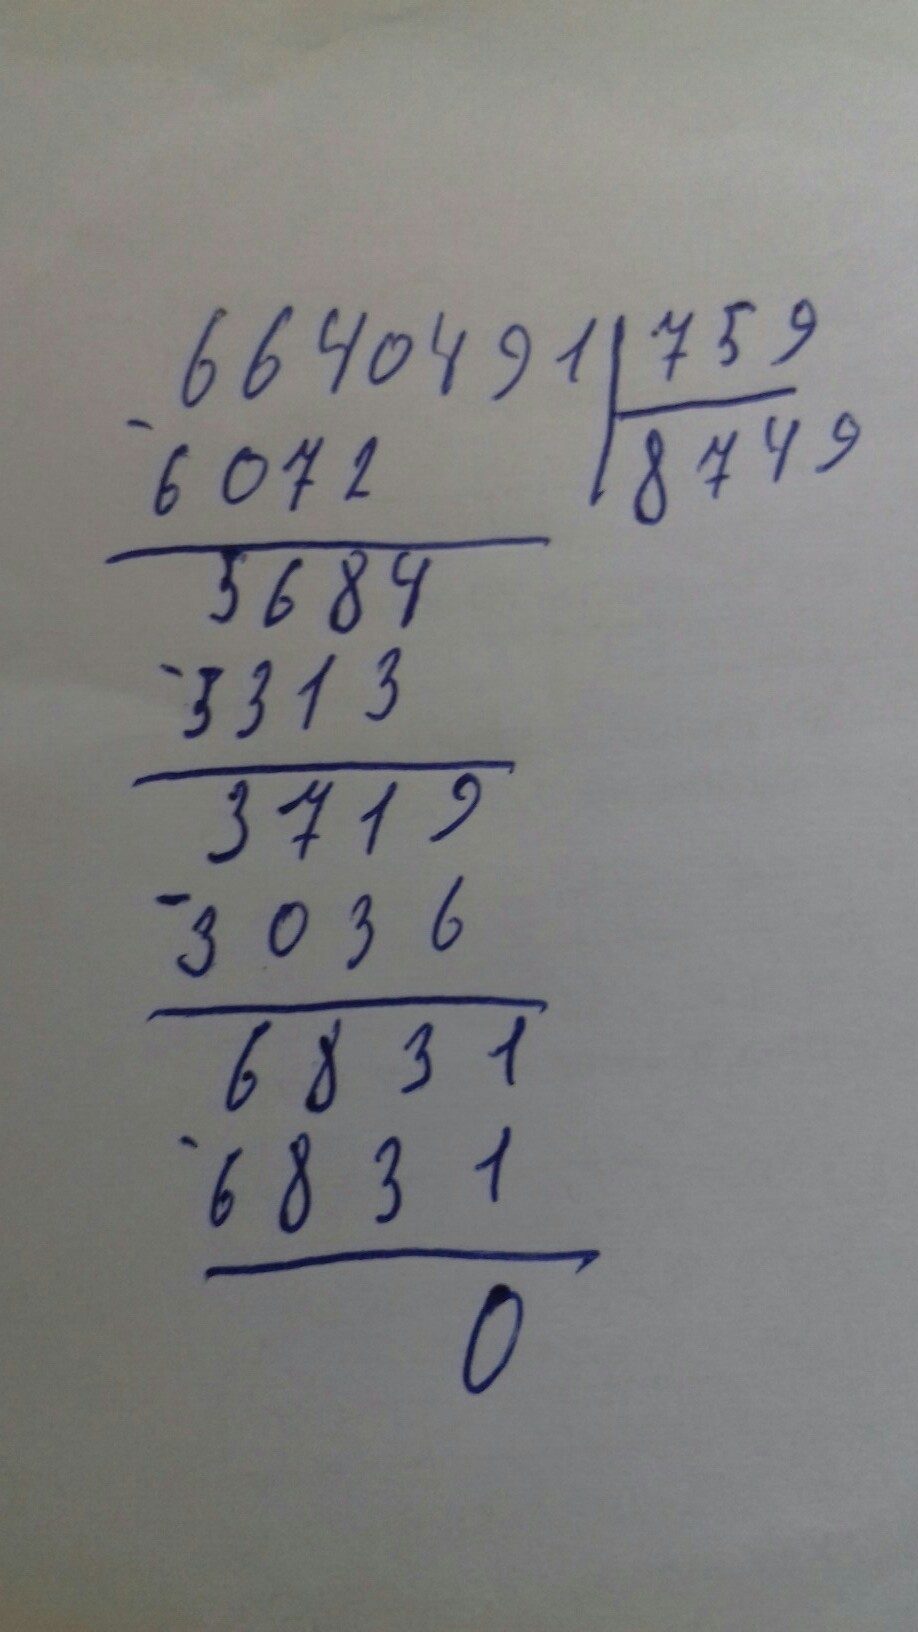 6640491 759
- 6072 8749
5684
- 5313
3719
- 3036
6831
- 6831
0